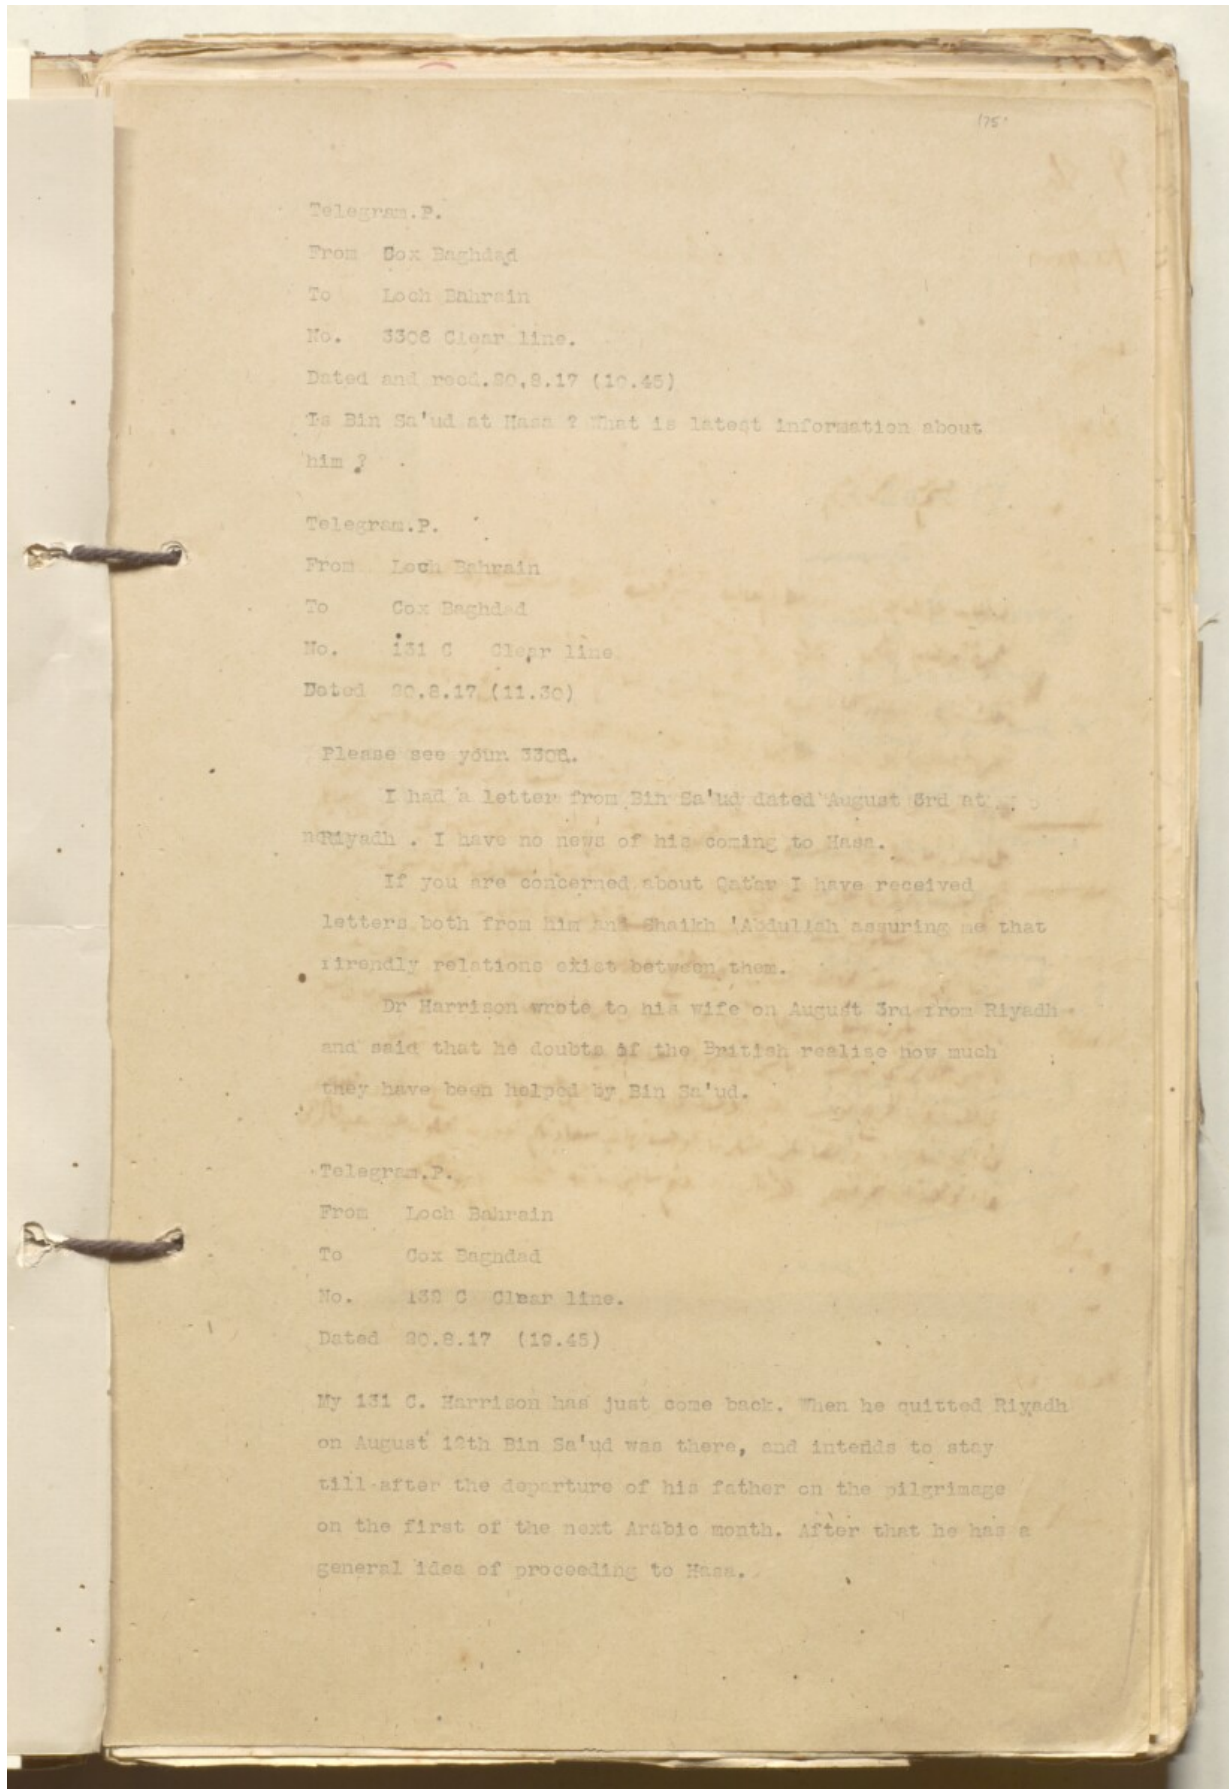 175
Telegram.P.
From Cox Baghdad
To Loch Bahrain
No. 3306 Clear line.
Dated and recd.20.8.17 (10.45)
Is Bin Sa'ud at Hasa ? What is latest information about
him ?
Telegram.P.
From Loch Bahrain
To Cox Baghdad
No. 131 C Clear line
Dated 20.8.17 (11.30)
Please see your 3306.
I had a letter from Bin Sa'ud dated August 3rd at
Riyadh . I have no news of his coming to Hasa.
If you are concerned about Qatar I have received
letters both from him and Shaikh 'Abdullah assuring me that
firendly relations exist between them.
Dr Harrison wrote to his wife on August 3rd from Riyadh
and said that he doubts if the British realise how much
they have been helped by Bin Sa'ud.
Telegram.P.
From Loch Bahrain
To Cox Baghdad
No. 132 C Clear line.
Dated 20.8.17 (19.45)
My 131 C. Harrison has just come back. When he quitted Riyadh
on August 12th Bin Sa'ud was there, and intends to stay
till after the departure of his father on the pilgrimage
on the first of the next Arabic month. After that he has a
general idea of proceeding to Hasa.